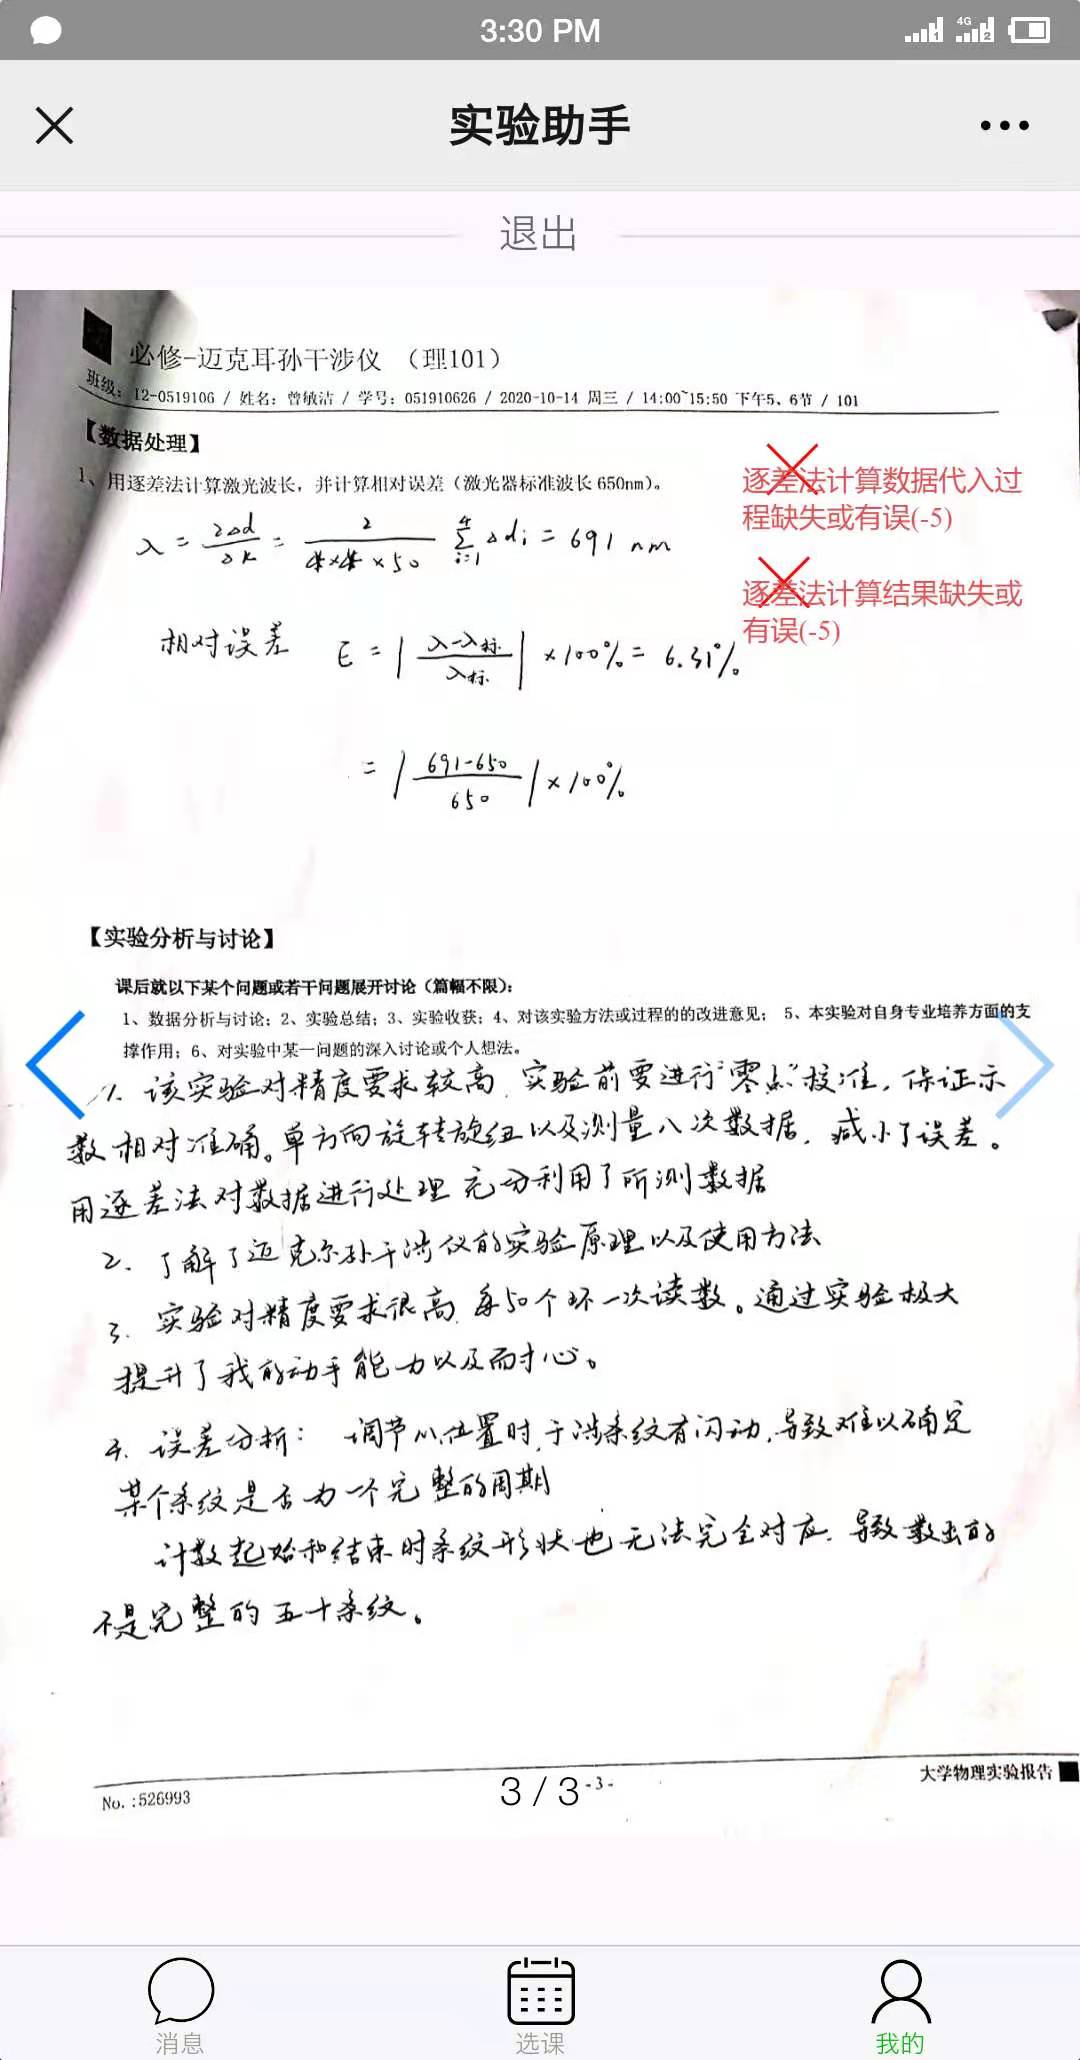 3:30 PM
4G
1
2
实验助手
退出
必修-迈克耳孙干涉仪 （理101）
班级：12-0519106 / 姓名：曾敏洁 / 学号：051910626 / 2020-10-14 周三 / 14:00~15:50 下午5、6节 / 101
【数据处理】
1、用逐差法计算激光波长，并计算相对误差（激光器标准波长 650nm）。
逐差法计算数据代入过
程缺失或有误(-5)
λ = 2Δd/Δk = 2/(4×4×50) ∑(i=1→4) Δdi = 691 nm
逐差法计算结果缺失或
有误(-5)
相对误差 E = |(λ-λ标)/λ标| ×100% = 6.31%
= |(691-650)/650| ×100%
【实验分析与讨论】
课后就以下某个问题或若干问题展开讨论（篇幅不限）：
1、数据分析与讨论；2、实验总结；3、实验收获；4、对该实验方法或过程的的改进意见； 5、本实验对自身专业培养方面的支
撑作用；6、对实验中某一问题的深入讨论或个人想法。
1. 该实验对精度要求较高，实验前要进行“零点”校准，保证示
数相对准确。单方向旋转旋纽以及测量八次数据，减小了误差。
用逐差法对数据进行处理 充分利用了所测数据
2. 了解了迈克尔孙干涉仪的实验原理以及使用方法
3. 实验对精度要求很高，每50个环一次读数。通过实验极大
提升了我的动手能力以及耐心。
4. 误差分析： 调节M位置时，干涉条纹有闪动，导致难以确定
某个条纹是否为一个完整的周期
计数起始和结束时条纹形状也无法完全对应，导致数出的
不是完整的五十条纹。
No.:526993
3 / 3
-3-
大学物理实验报告
消息
选课
我的